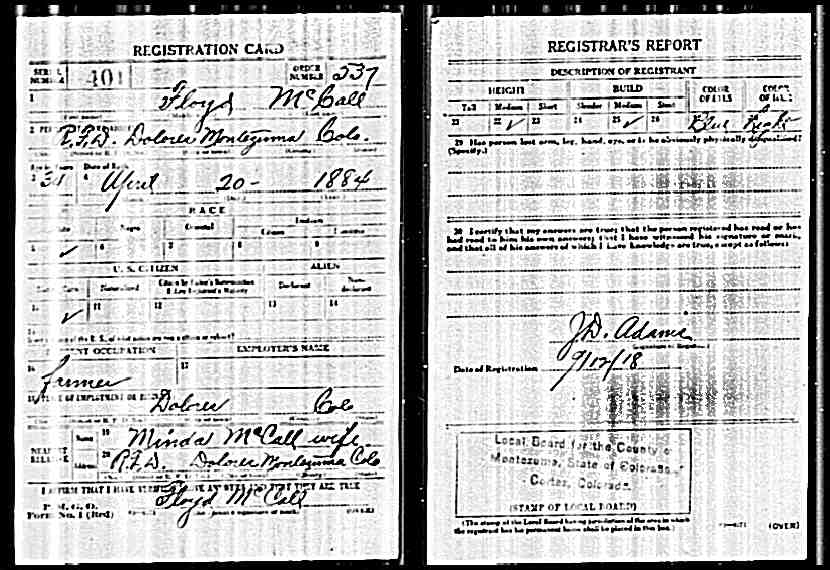 REGISTRATION CARD
SERIAL NUMBER 401 ORDER NUMBER 537
1 Floyd McCall
R.F.D. Dolores Montezuma Colo.
Date of Birth
3 4 April 20- 1884
RACE
Negro Oriental Indian
✓ 6
U. S. CITIZEN ALIEN
Naturalized Declared
✓ 11 12 13 14
OCCUPATION EMPLOYER'S NAME
16 farmer 17
Dolores Colo
NEAREST RELATIVE Name 19 Minda McCall wife
Address 20 R.F.D. Dolores Montezuma Colo
I AFFIRM THAT I HAVE THAT THEY ARE TRUE
Floyd McCall
Form No. 1 (Red) (OVER)
REGISTRAR'S REPORT
DESCRIPTION OF REGISTRANT
HEIGHT BUILD COLOR OF EYES COLOR OF
Tall Medium Short Slender Medium Stout
21 22 ✓ 23 24 25 ✓ 26 Blue
29 Has person lost arm, leg, hand, eye, or is he obviously physically disqualified?
(Specify.)
30 I certify that my answers are true; that the person registered has read or has
had read to him his own answers; that I have witnessed his signature or mark,
and that all of his answers of which I have knowledge are true, except as follows:
J.D. Adams
(Signature of Registrar)
Date of Registration 9/12/18
Local Board for the County of
Montezuma, State of Colorado
Cortez, Colorado
(STAMP OF LOCAL BOARD)
(The stamp of the Local Board having jurisdiction of the area in which
the registrant has his permanent home shall be placed in this box.) (OVER)